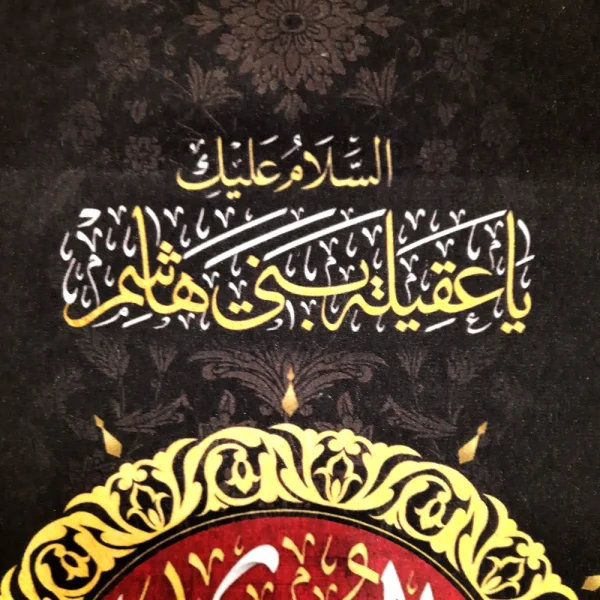 السَّلَامُ عَلَيْكِ
يَا عَقِيلَةَ بَنِي هَاشِمْ